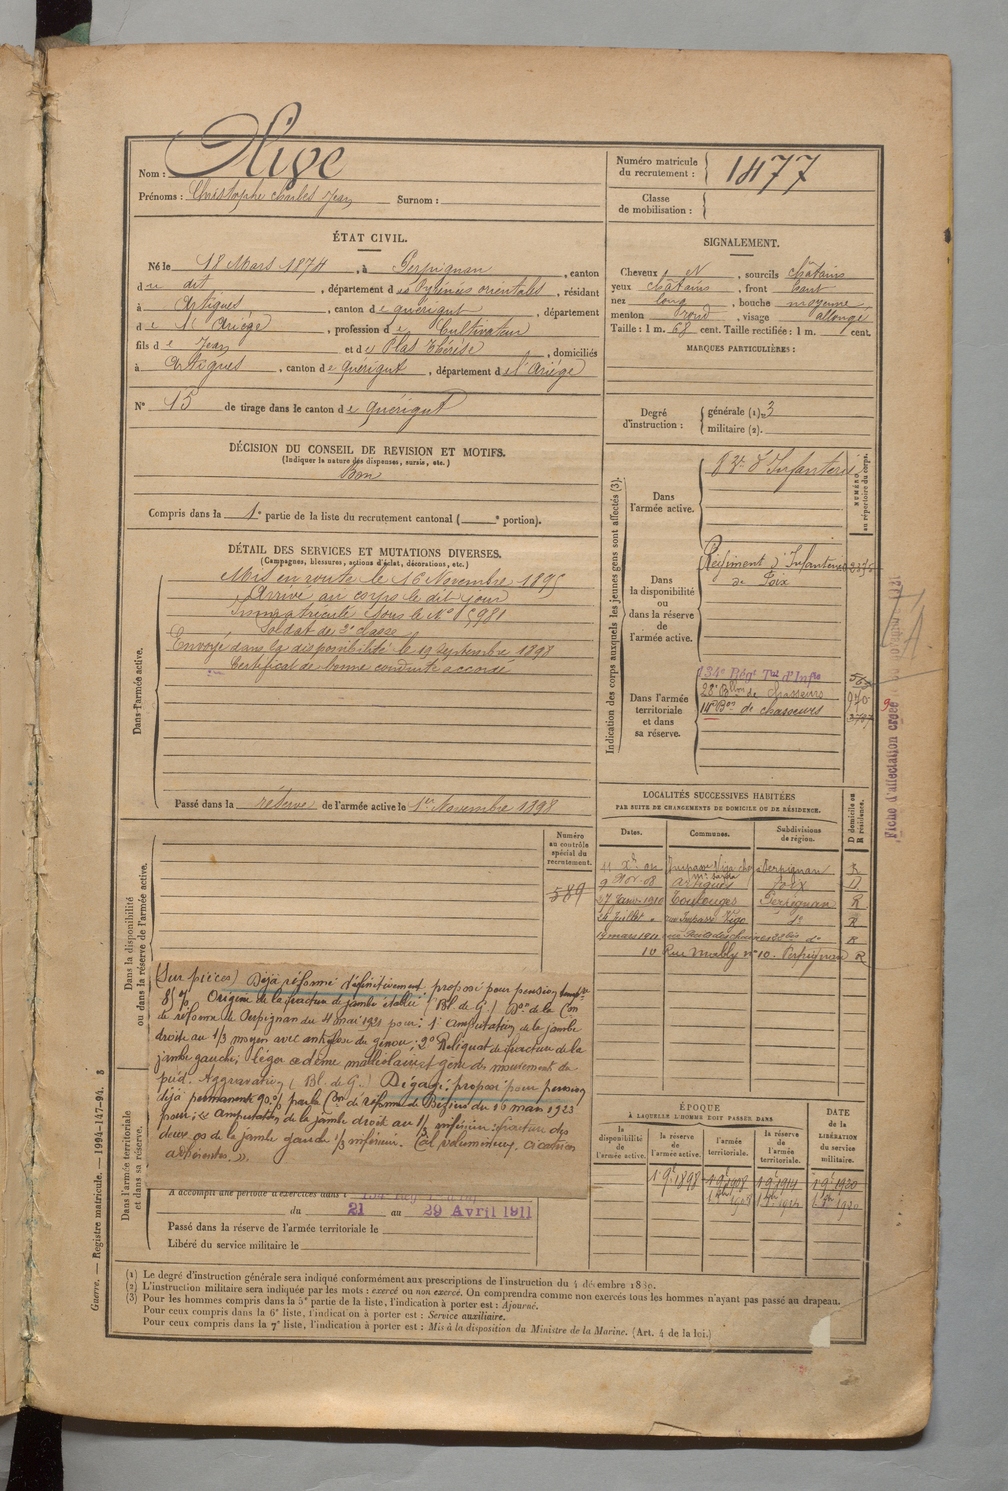 Nom :
Prénoms : Christophe Charles Jean Surnom :
Numéro matricule du recrutement : 1477
Classe de mobilisation :
ÉTAT CIVIL.
Né le 18 Mars 1874, à Perpignan, canton
du dit, département des Pyrénées orientales, résidant
à Artigues, canton de Quérigut, département
de l'Ariège, profession de Cultivateur
fils de Jean et de Plas Thérèse, domiciliés
à Artigues, canton de Quérigut, département de l'Ariège
N° 15 de tirage dans le canton de Quérigut
SIGNALEMENT.
Cheveux N, sourcils châtains
yeux châtains, front haut
nez long, bouche moyenne
menton rond, visage allongé
Taille : 1 m. 68 cent. Taille rectifiée : 1 m. cent.
MARQUES PARTICULIÈRES :
Degré d'instruction : générale (1). 3
militaire (2).
DÉCISION DU CONSEIL DE REVISION ET MOTIFS.
(Indiquer la nature des dispenses, sursis, etc.)
Bon
Compris dans la 1e partie de la liste du recrutement cantonal ( e portion).
DÉTAIL DES SERVICES ET MUTATIONS DIVERSES.
(Campagnes, blessures, actions d'éclat, décorations, etc.)
Dans l'armée active.
Mis en route le 16 Novembre 1895
Arrivé au corps le dit jour
Immatriculé sous le N°
Soldat de 2e classe
Envoyé dans la disponibilité le 19 septembre 1898
Certificat de bonne conduite accordé
Passé dans la réserve de l'armée active le 1er Novembre 1898
Indication des corps auxquels les jeunes gens sont affectés (3).
NUMÉRO au répertoire du corps.
Dans l'armée active.
d'Infanterie
Dans la disponibilité ou dans la réserve de l'armée active.
Régiment d'Infanterie
de Foix
Dans l'armée territoriale et dans sa réserve.
134e Régt Tal d'Infie
28e Bllon de Chasseurs
14e Bon de chasseurs
Fiche d'affectation créée
Numéro au contrôle spécial du recrutement.
589
Dans la disponibilité ou dans la réserve de l'armée active.
(Sur pièces) Déjà réformé définitivement proposé pour pension
85 % Origine de la fracture de jambe établie (Bl. de G.) Don de la Con
de réforme de Perpignan du 4 mai 1921 pour : 1° amputation de la jambe
droite au 1/3 moyen avec ankylose du genou ; 2° Reliquat de fracture de la
jambe gauche, léger œdème malléolaire et gêne des mouvements du
pied. Aggravation (Bl. de G.) Dégagé : proposé pour pension
déjà permanente 90 % par la Con de réforme de Béziers du 10 mars 1923
pour : « amputation de la jambe droite au 1/3 inférieur : fracture des
deux os de la jambe gauche 1/3 inférieur. Cal volumineux, cicatrices
adhérentes. ».
Dans l'armée territoriale et dans sa réserve.
A accompli une période d'exercices dans l
du 21 au 29 Avril 1911
Passé dans la réserve de l'armée territoriale le
Libéré du service militaire le
LOCALITÉS SUCCESSIVES HABITÉES
PAR SUITE DE CHANGEMENTS DE DOMICILE OU DE RÉSIDENCE.
Dates. Communes. Subdivisions de région. D domicile ou R résidence.
Perpignan R
9 Nov. 08 Artigues Foix D
27 Janv. 1910 Toulouges Perpignan R
26 Juillet d° R
R
Rue Mailly n° 10. Perpignan R
ÉPOQUE
À LAQUELLE L'HOMME DOIT PASSER DANS
DATE de la LIBÉRATION du service militaire.
la disponibilité de l'armée active. la réserve de l'armée active. l'armée territoriale. la réserve de l'armée territoriale.
1 9e 1898 1 9e 1908 1 9e 1914 1 9e 1920
(1) Le degré d'instruction générale sera indiqué conformément aux prescriptions de l'instruction du 4 décembre 1889.
(2) L'instruction militaire sera indiquée par les mots : exercé ou non exercé. On comprendra comme non exercés tous les hommes n'ayant pas passé au drapeau.
(3) Pour les hommes compris dans la 5e partie de la liste, l'indication à porter est : Ajourné.
Pour ceux compris dans la 6e liste, l'indication à porter est : Service auxiliaire.
Pour ceux compris dans la 7e liste, l'indication à porter est : Mis à la disposition du Ministre de la Marine. (Art. 4 de la loi.)
Guerre. — Registre matricule. — 1994-147-94. 3